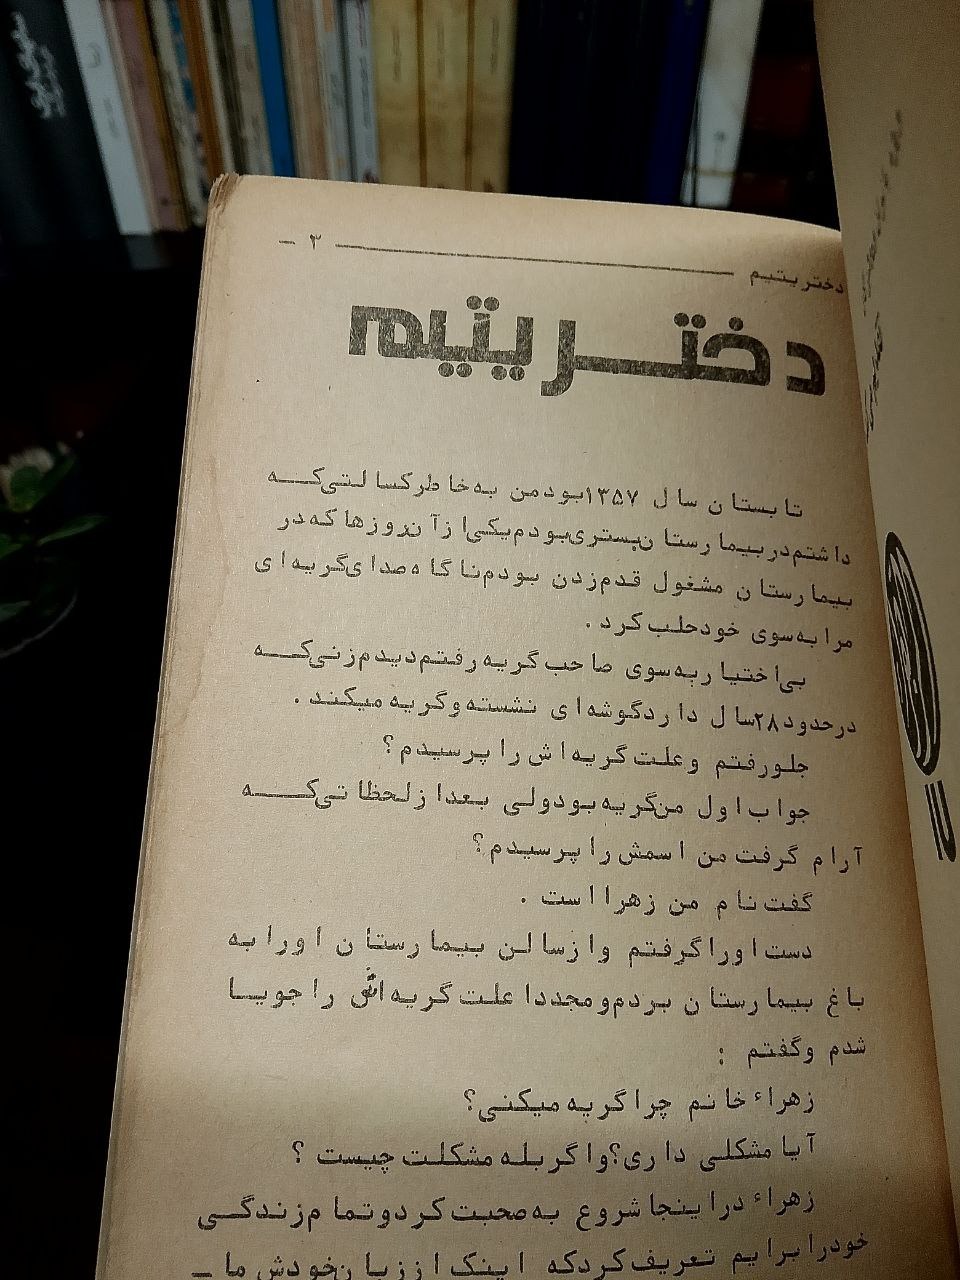 دختر یتیم
۳ -
دختر یتیم
تابستان سال ۱۳۵۷بود من به خاطر کسالتی که
داشتم در بیمارستان بستری بودم یکی از آن روزها که در
بیمارستان مشغول قدم زدن بودم ناگاه صدای گریه ای
مرا به سوی خود حلب کرد .
بی اختیار به سوی صاحب گریه رفتم دیدم زنی که
در حدود ۲۸سال دارد گوشه ای نشسته و گریه میکند .
جلو رفتم و علت گریه اش را پرسیدم ؟
جواب اول من گریه بود ولی بعد از لحظاتی که
آرام گرفت من اسمش را پرسیدم ؟
گفت نام من زهرا است .
دست او را گرفتم و از سالن بیمارستان او را به
باغ بیمارستان بردم و مجددا علت گریه اش را جویا
شدم و گفتم :
زهراء خانم چرا گریه میکنی؟
آیا مشکلی داری؟ و اگر بله مشکلت چیست ؟
زهراء در اینجا شروع به صحبت کرد و تمام زندگی
خود را برایم تعریف کرد که اینک از زبان خودش ما -